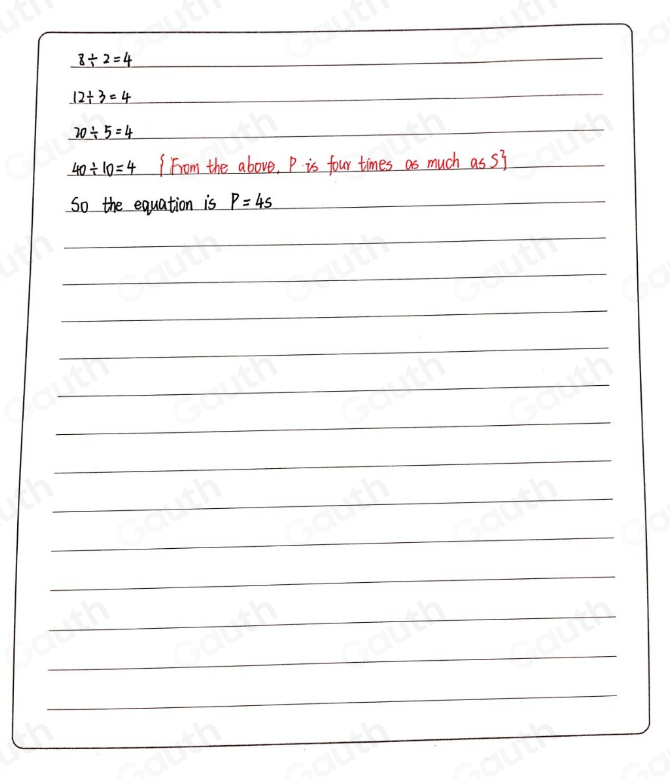 8÷2=4
12÷3=4
20÷5=4
40÷10=4 {From the above, P is four times as much as S}
So the equation is P=4s